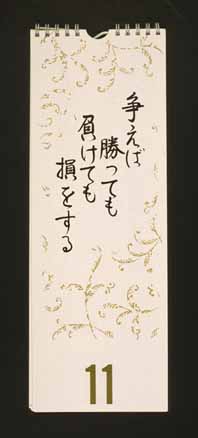 争えば
勝っても
負けても
損をする
11